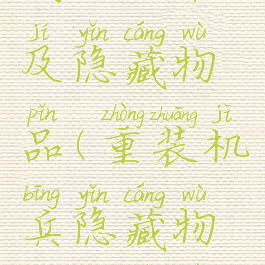 jí yǐn cáng wù
及隐藏物
pǐn zhòng zhuāng jī
品(重装机
bīng yǐn cáng wù
兵隐藏物